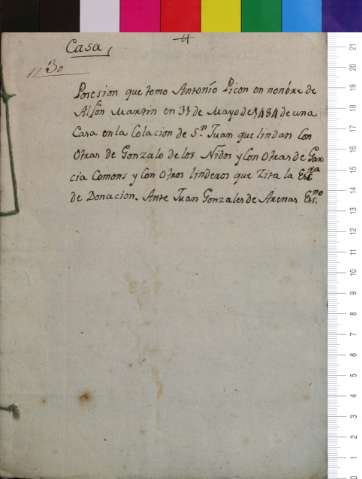 Casa,
n 30
Posesion que tomo Antonio Picon en nonbre de
Alfon Martin en 31 de Mayo de 1484 de una
Casa en la Colacion de Sn Juan que lindan con
Otras de Gonzalo de los Nidos y con otras de Gar
cia Comons y con otros linderos que Zita la Esra
de Donacion. Ante Juan Gonzales de Arenas Esno
21
20
19
18
17
16
15
14
13
12
11
10
9
8
7
6
5
4
3
2
1
0